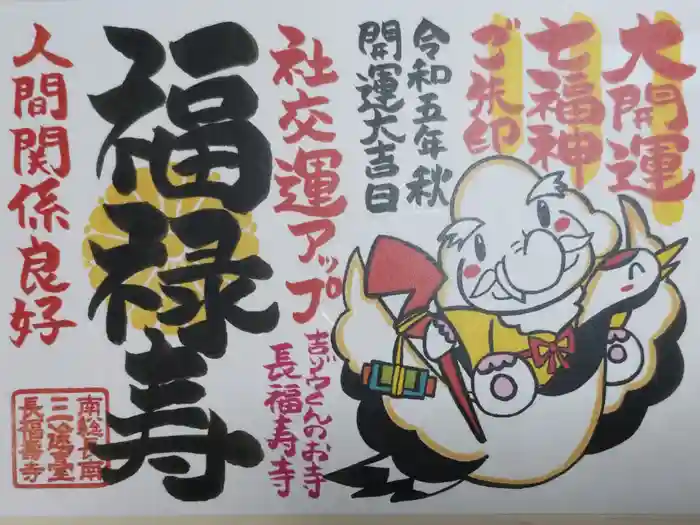 大開運
七福神
ご朱印
令和五年秋
開運大吉日
社交運アップ
吉ゾウくんのお寺
長福寿寺
福禄寿
人間関係良好
長福壽寺